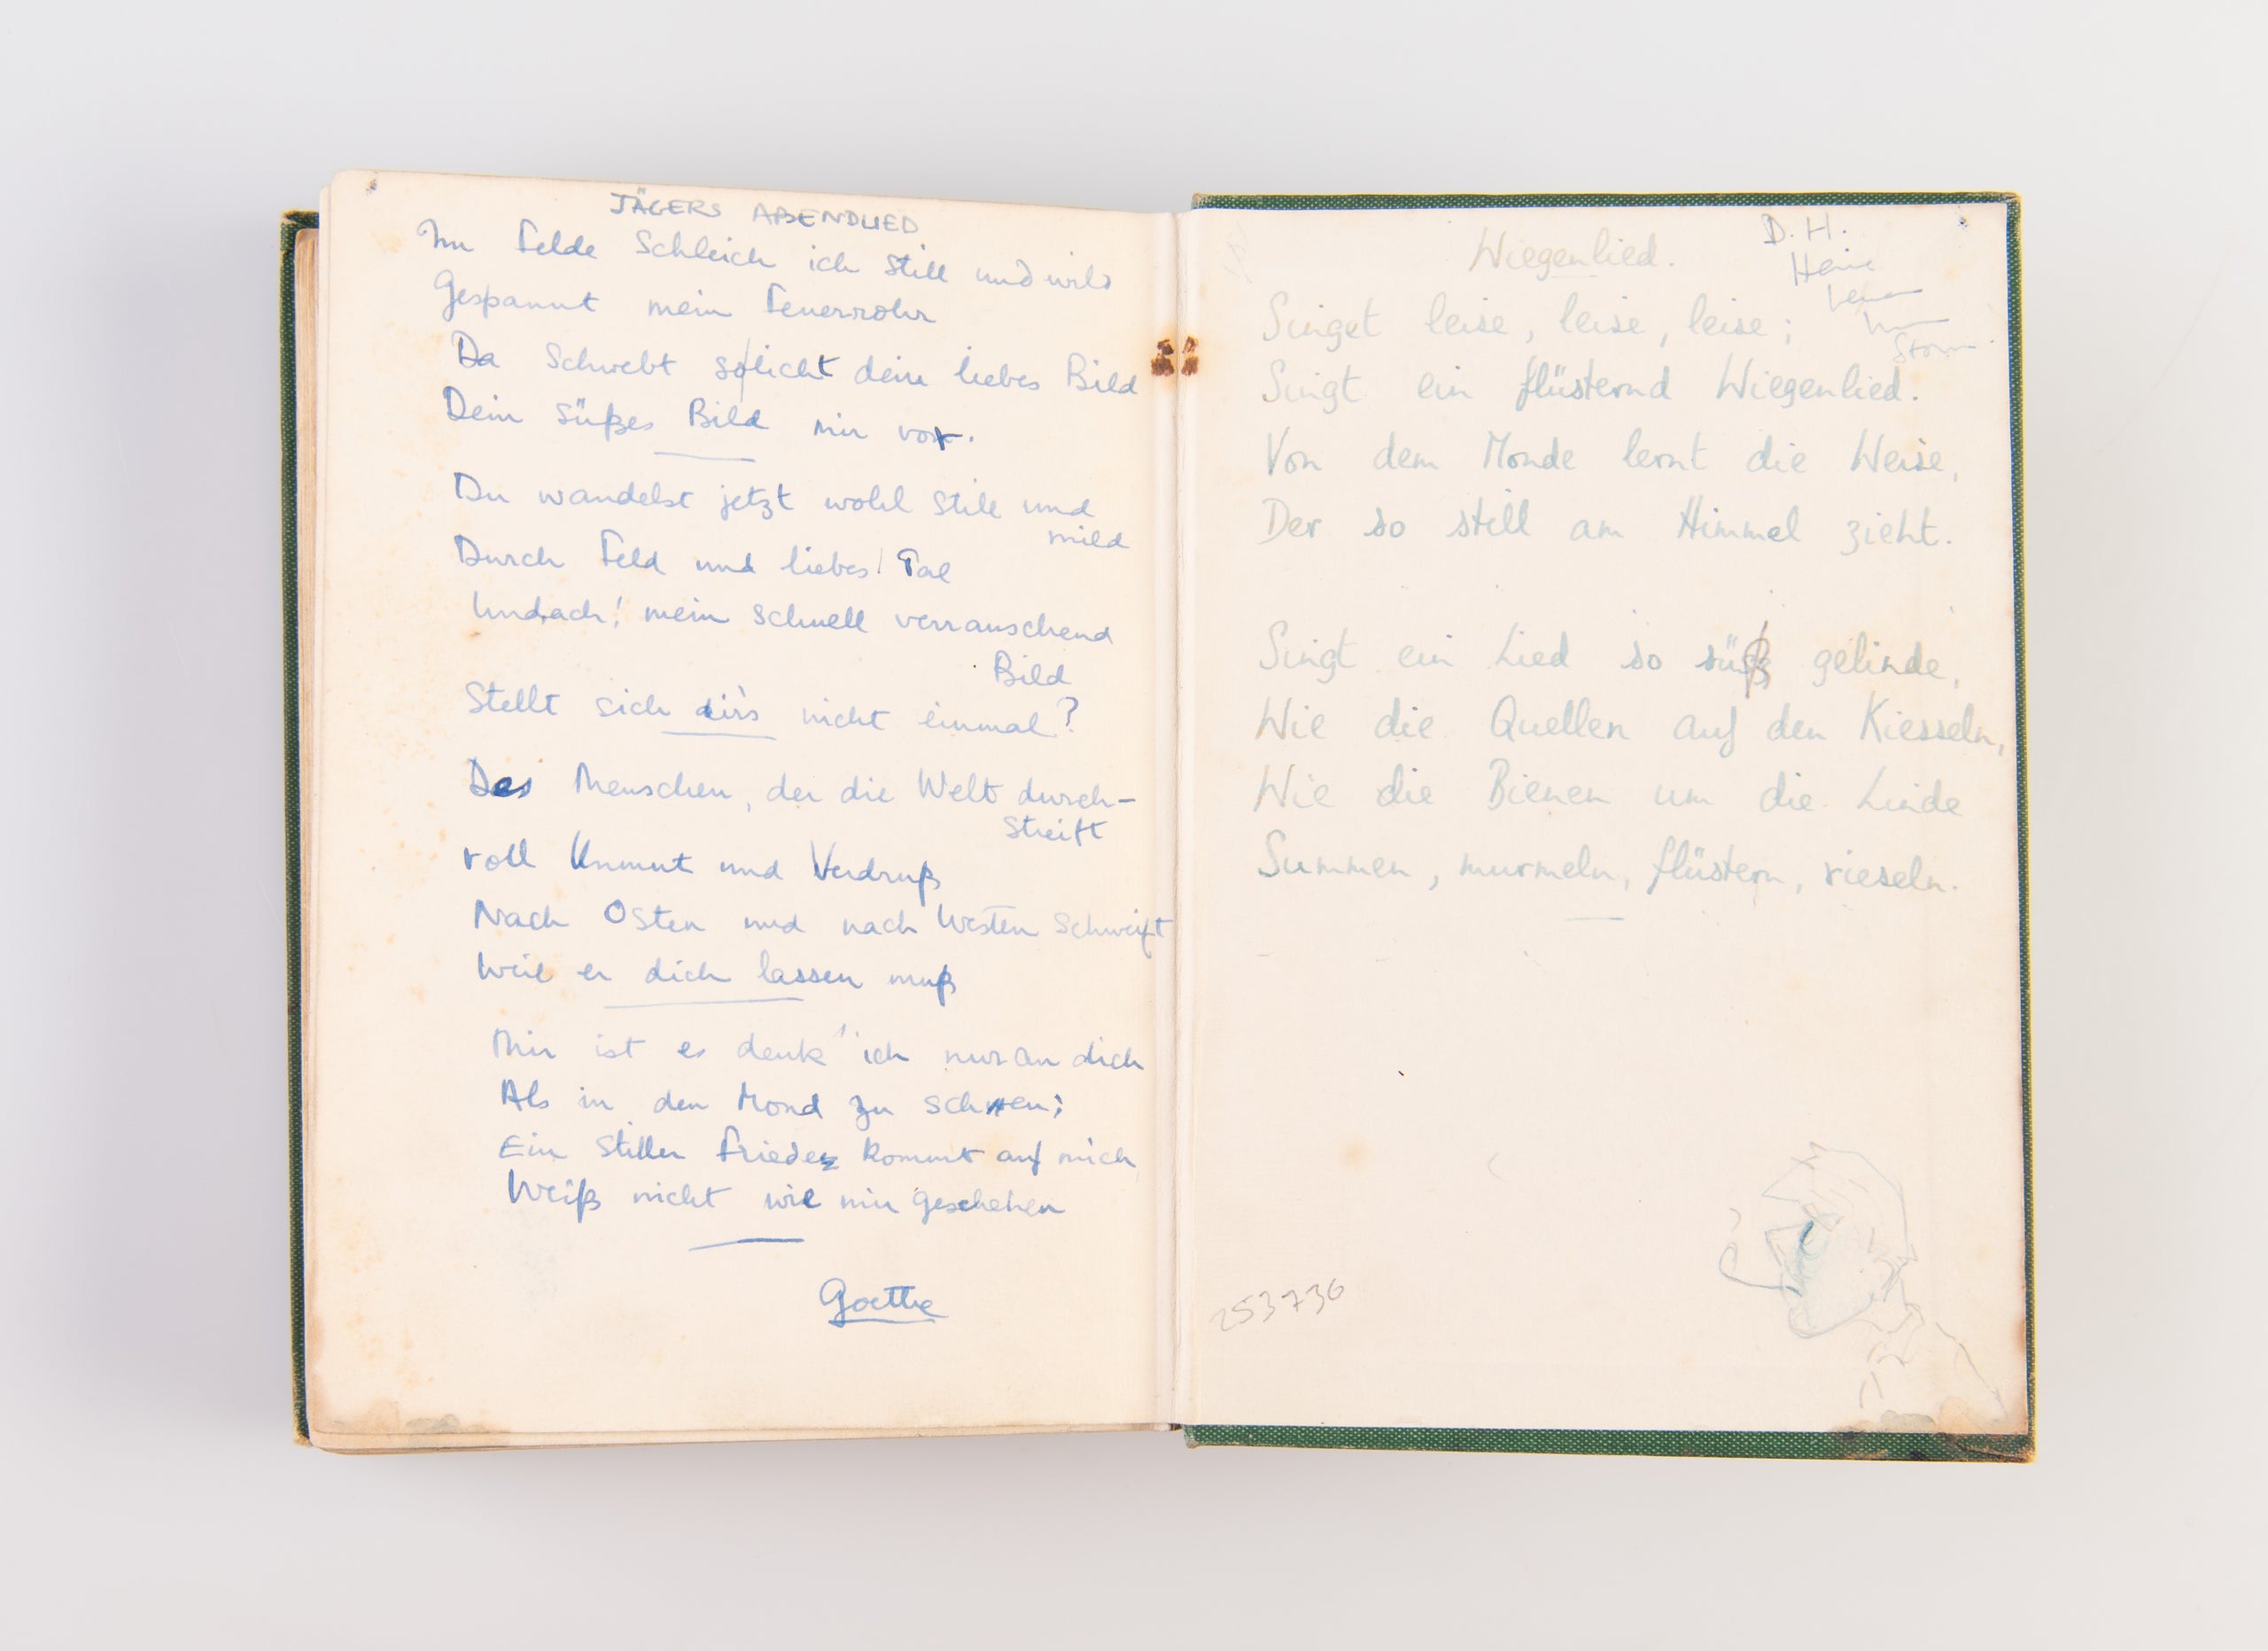 JÄGERS ABENDLIED
Im Felde Schleich ich still und wild
Gespannt mein Feuerrohr
Da Schwebt so licht dein liebes Bild
Dein süßes Bild mir vor.
Du wandelst jetzt wohl still und
mild
Durch Feld und liebes Tal
Und ach! mein schnell verrauschend
Bild
Stellt sich dir's nicht einmal?
Des Menschen, der die Welt durch-
streift
voll Unmut und Verdruß
Nach Osten und nach Westen schweift
Weil er dich lassen muß
Mir ist es denk' ich nur an dich
Als in den Mond zu sehen;
Ein stiller Friede kommt auf mich
Weiß nicht wie mir geschehen
Goethe
Wiegenlied.
D. H.
Heine
Storm
Singet leise, leise, leise;
Singt ein flüsternd Wiegenlied.
Von dem Monde lernt die Weise,
Der so still am Himmel zieht.
Singt ein Lied so süß gelinde,
Wie die Quellen auf den Kiesseln,
Wie die Bienen um die Linde
Summen, murmeln, flüstern, rieseln.
253736